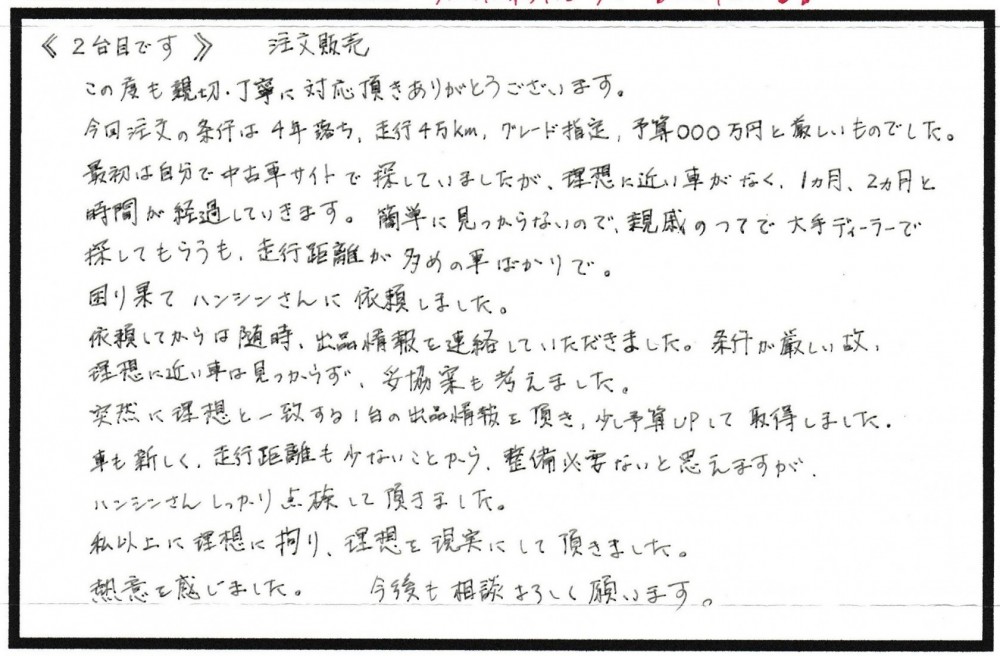 《2台目です》 注文販売
この度も親切・丁寧に対応頂きありがとうございます。
今回注文の条件は4年落ち,走行4万km,グレード指定,予算〇〇〇万円と厳しいものでした。
最初は自分で中古車サイトで探していましたが、理想に近い車がなく、1ヵ月、2ヵ月と
時間が経過していきます。簡単に見つからないので、親戚のつてで大手ディーラーで
探してもらうも、走行距離が多めの車ばかりで。
困り果てハンシンさんに依頼しました。
依頼してからは随時、出品情報を連絡していただきました。条件が厳しい故、
理想に近い車は見つからず、妥協案も考えました。
突然に理想と一致する1台の出品情報を頂き,少し予算UPして取得しました。
車も新しく,走行距離も少ないことから,整備必要ないと思えますが、
ハンシンさんしっかり点検して頂きました。
私以上に理想に拘り、理想を現実にして頂きました。
熱意を感じました。 今後も相談よろしく願います。